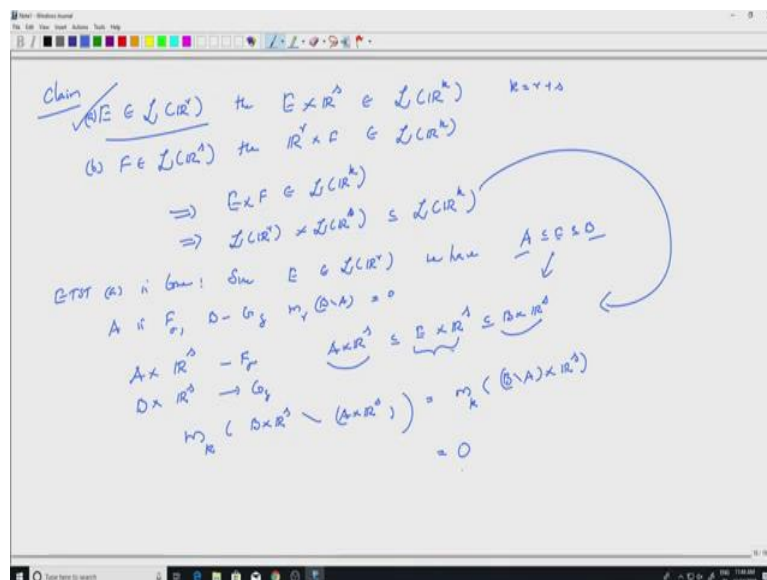 Note1 - Windows Journal
File Edit View Insert Actions Tools Help
Claim
(a) E ∈ L(ℝ^r) the E × ℝ^s ∈ L(ℝ^k) k = r + s
(b) F ∈ L(ℝ^s) the ℝ^r × F ∈ L(ℝ^k)
⇒ E × F ∈ L(ℝ^k)
⇒ L(ℝ^r) × L(ℝ^s) ⊆ L(ℝ^k)
ETST (a) is true: Since E ∈ L(ℝ^r) we have A ⊆ E ⊆ B
A is F_σ, B - G_δ m_r(B\A) = 0
A × ℝ^s - F_σ A × ℝ^s ⊆ E × ℝ^s ⊆ B × ℝ^s
B × ℝ^s → G_δ
m_k(B × ℝ^s \ (A × ℝ^s)) = m_k((B\A) × ℝ^s)
= 0
Type here to search ENG 11:48 AM